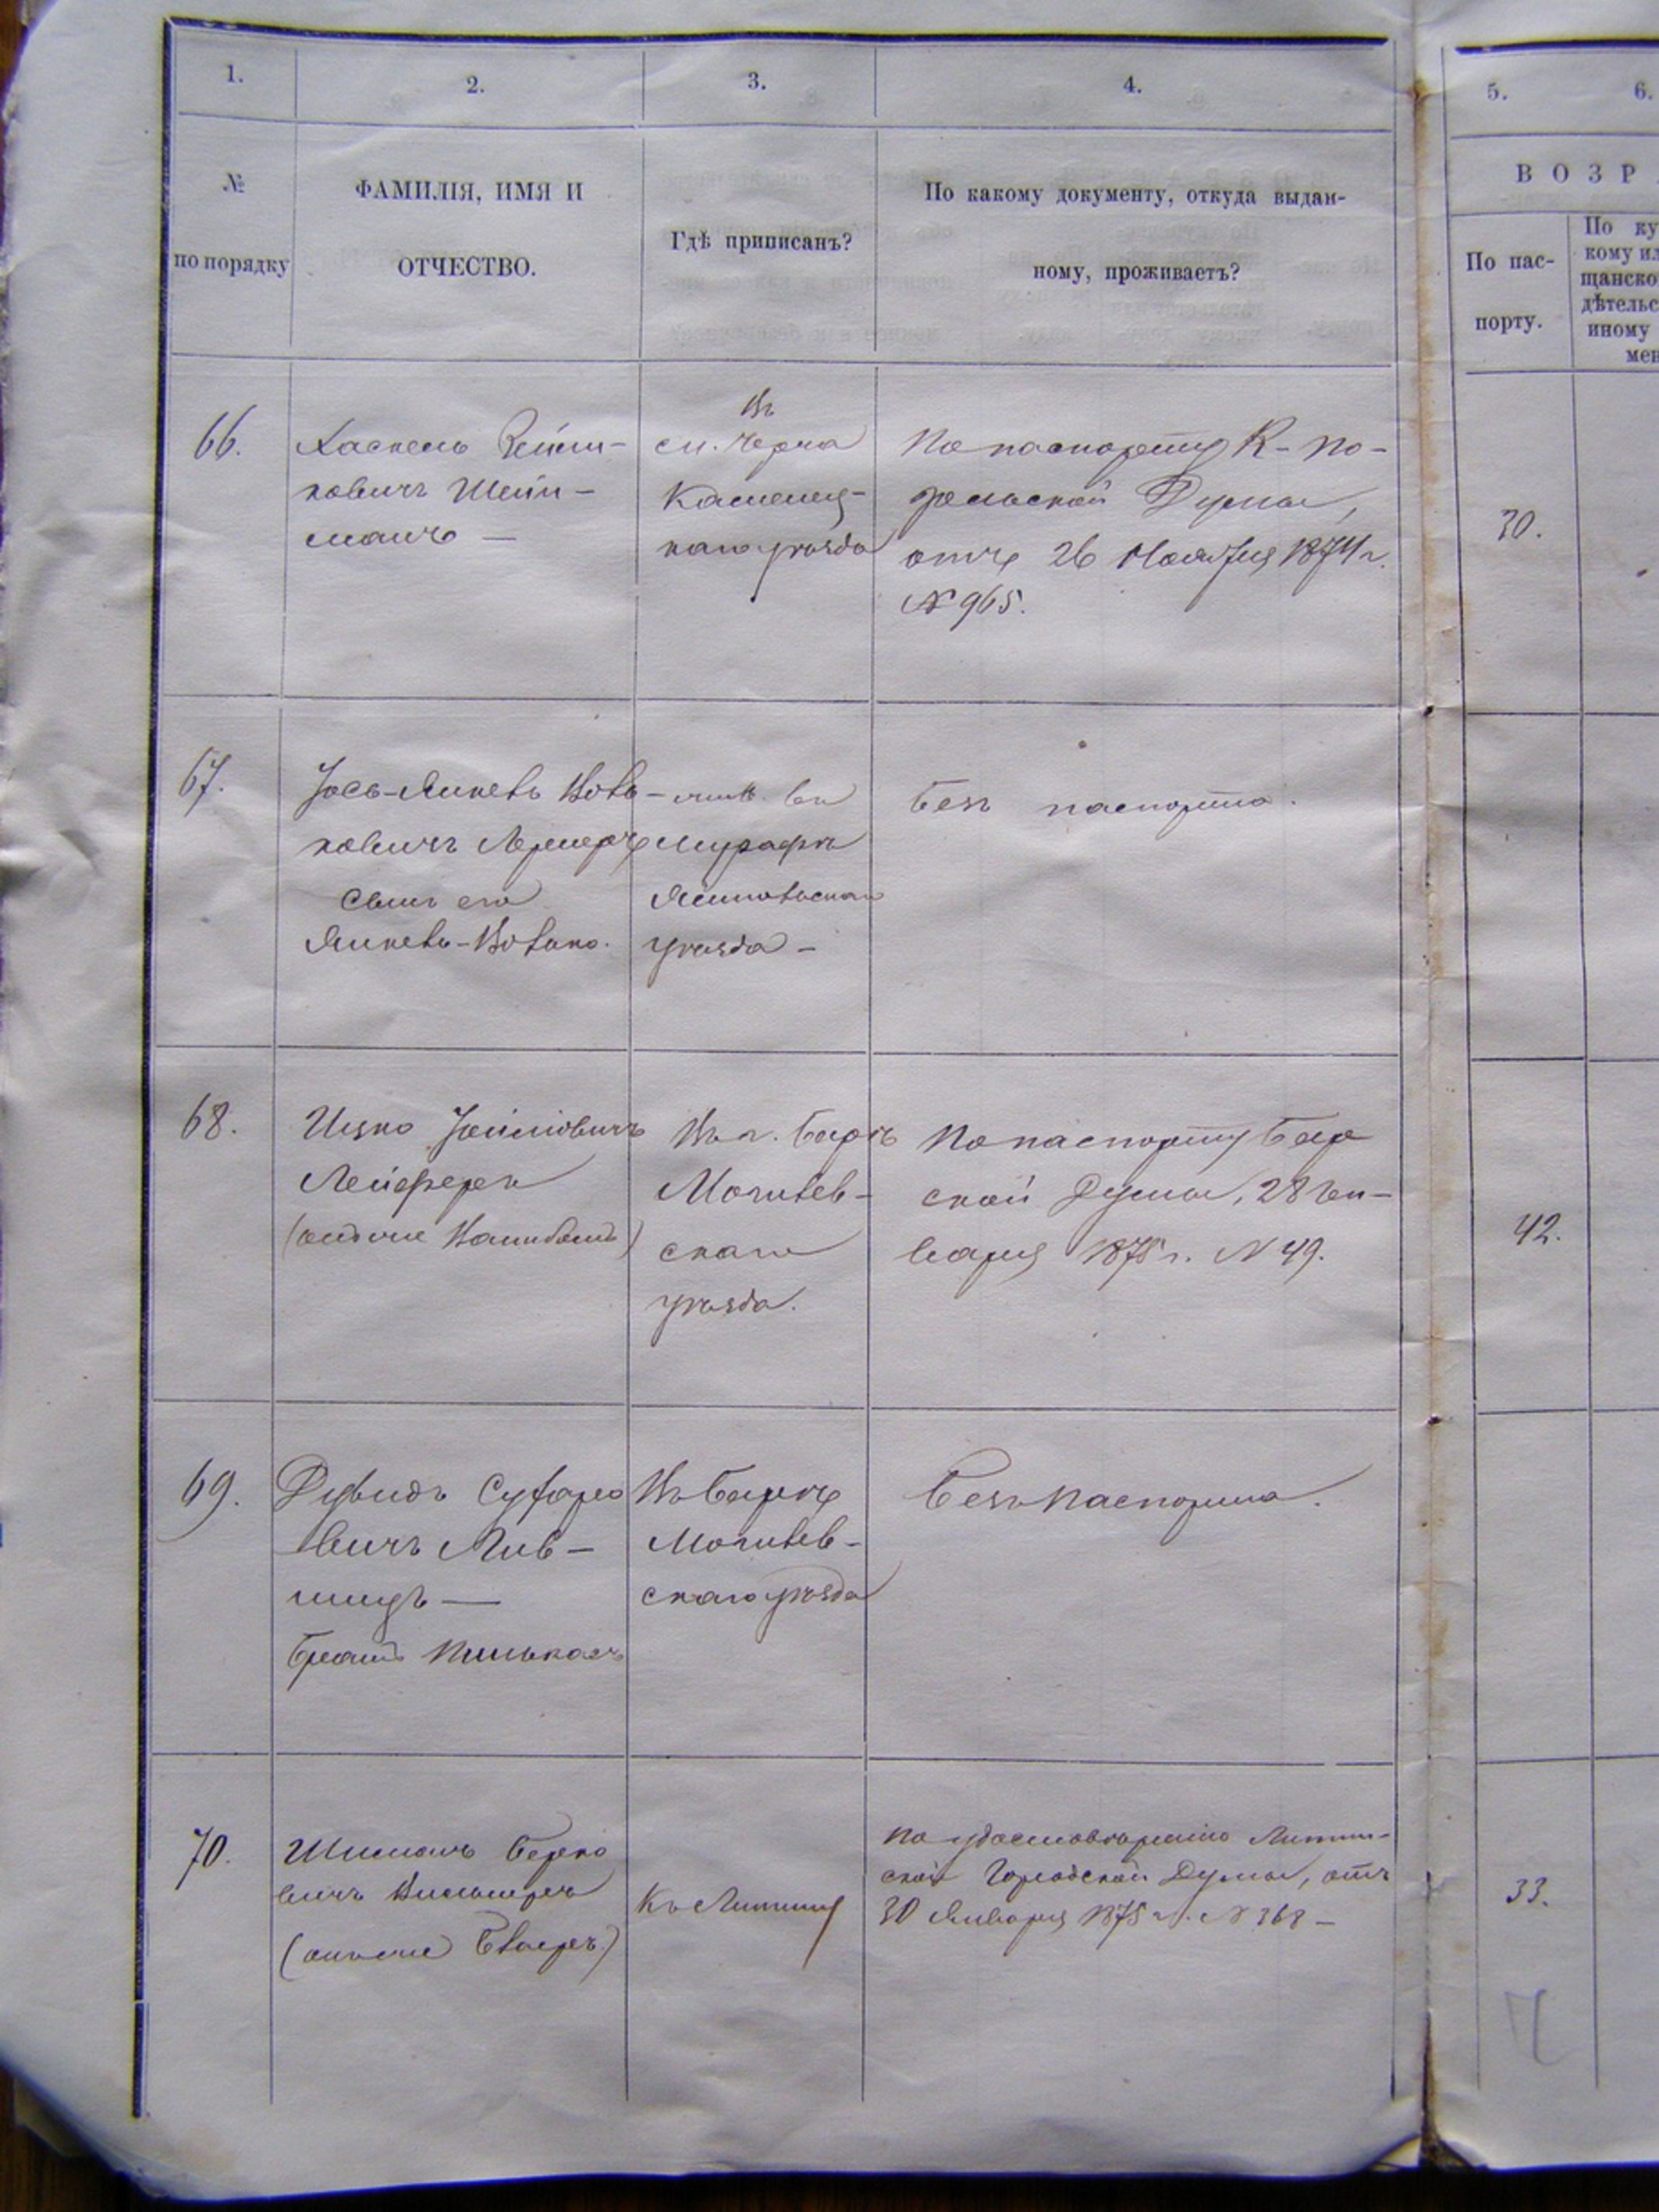 1.
2.
3.
4.
5.
6.
№
по порядку
ФАМИЛІЯ, ИМЯ И
ОТЧЕСТВО.
Гдѣ приписанъ?
По какому документу, откуда выдан-
ному, проживаетъ?
ВОЗР
По пас-
порту.
По ку
кому ил
щанско
дѣтельс
иному
мен
66.
Хаскель
ковичъ Шейн-
манъ —
Въ
см. Черча
Каменец-
каго уѣзда
По паспорту К-По-
дольской Думы,
отъ 26 Ноября 1874 г.
№ 965.
30.
67.
Іось-Янкель Вовь-
ковичъ Лернеръ
Сынъ его
Янкель-Волько.
въ
Мурафѣ
Ямпольскаго
уѣзда —
Безъ паспорта.
68.
Ицко
Лейферъ
(
Въ г. Барѣ
Могилев-
скаго
уѣзда.
По паспорту Бар
ской Думы, 28 Ян-
варя 1875 г. № 49.
42.
69.
Дувидъ
вичъ Лив-
шицъ —
братъ Пинькасъ
Въ Барѣ
Могилев-
скаго уѣзда
Безъ паспорта.
70.
Шимонъ Берко
вичъ
(онъ же
Къ Литину
По удостовѣренію Литин-
ской Городской Думы, отъ
30 Января 1875 г. № 368 —
33.